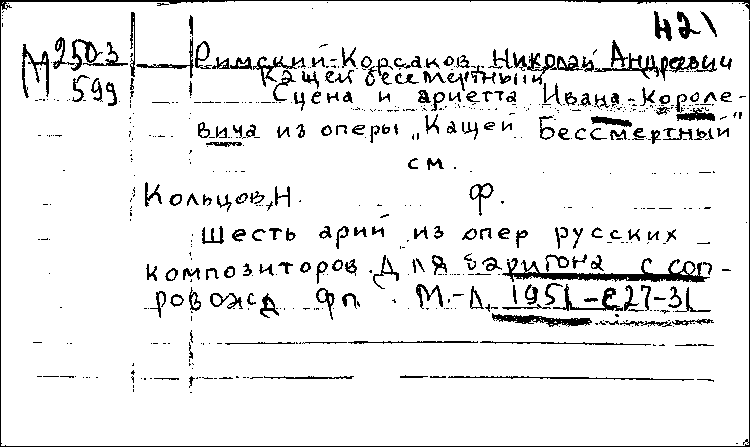 421
М 250-3
599
Римский-Корсаков, Николай Андреевич
Кащей бессмертный
Сцена и ариетта Ивана-Короле-
вича из оперы „Кащей Бессмертный"
см.
Кольцов, Н. Ф.
Шесть арий из опер русских
композиторов. Для баритона с соп-
ровожд фп. М.-Л. 1951 - с 27-31